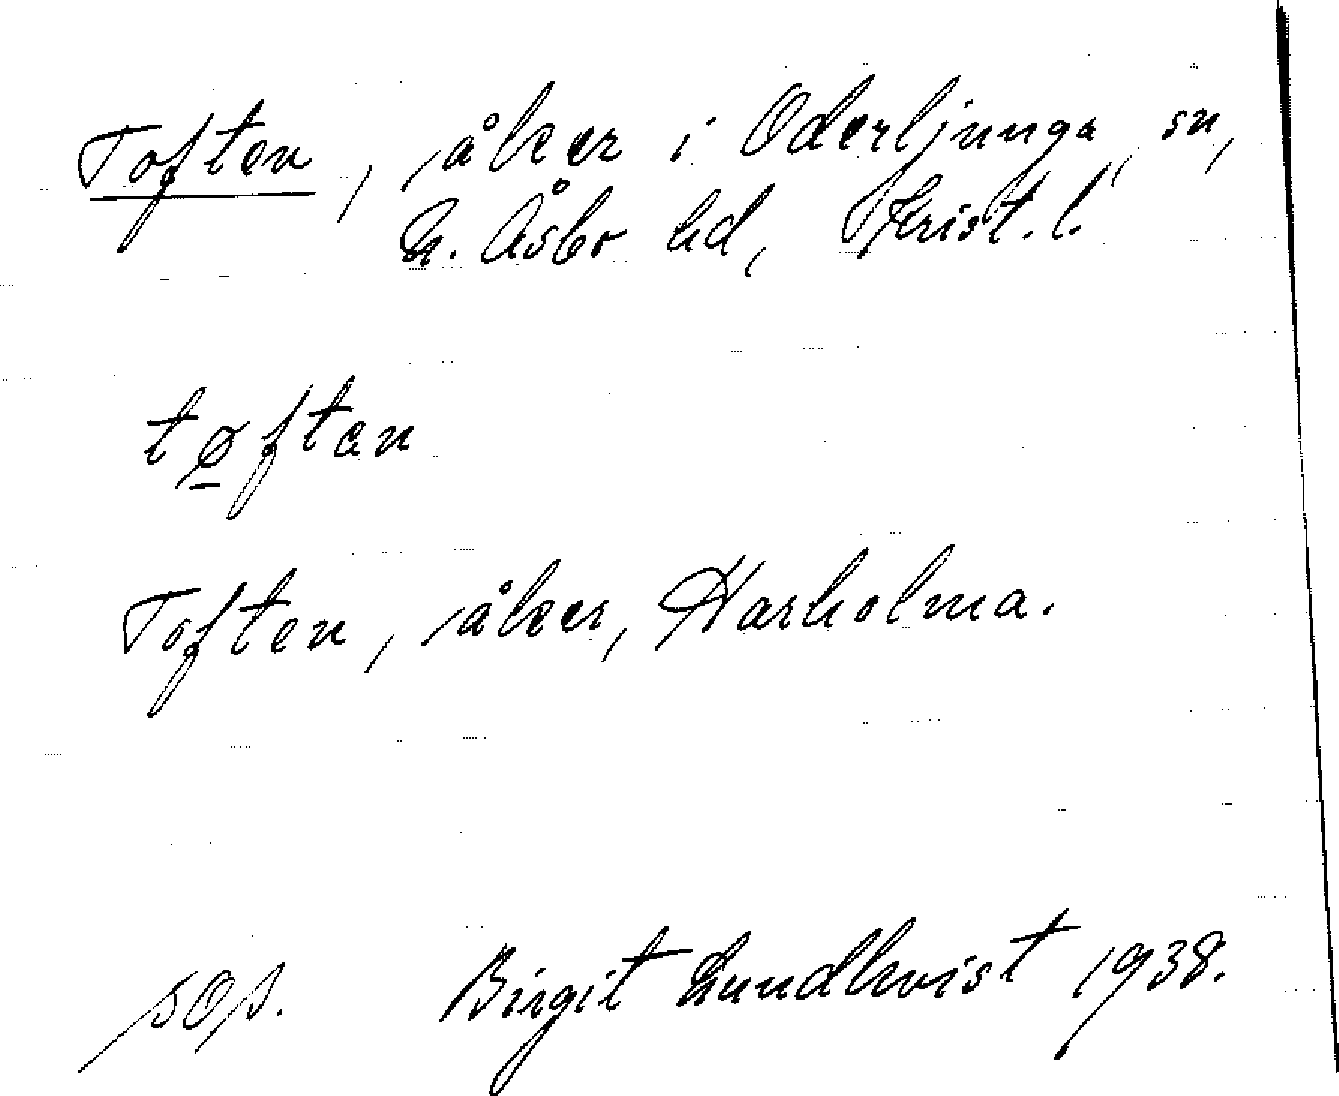 Toften, åker i Oderljunga sn,
N. Åsbo hd, Krist. l.
tøftan
Toften, åker, Harholma.
sOs. Birgit Lundkvist 1938.